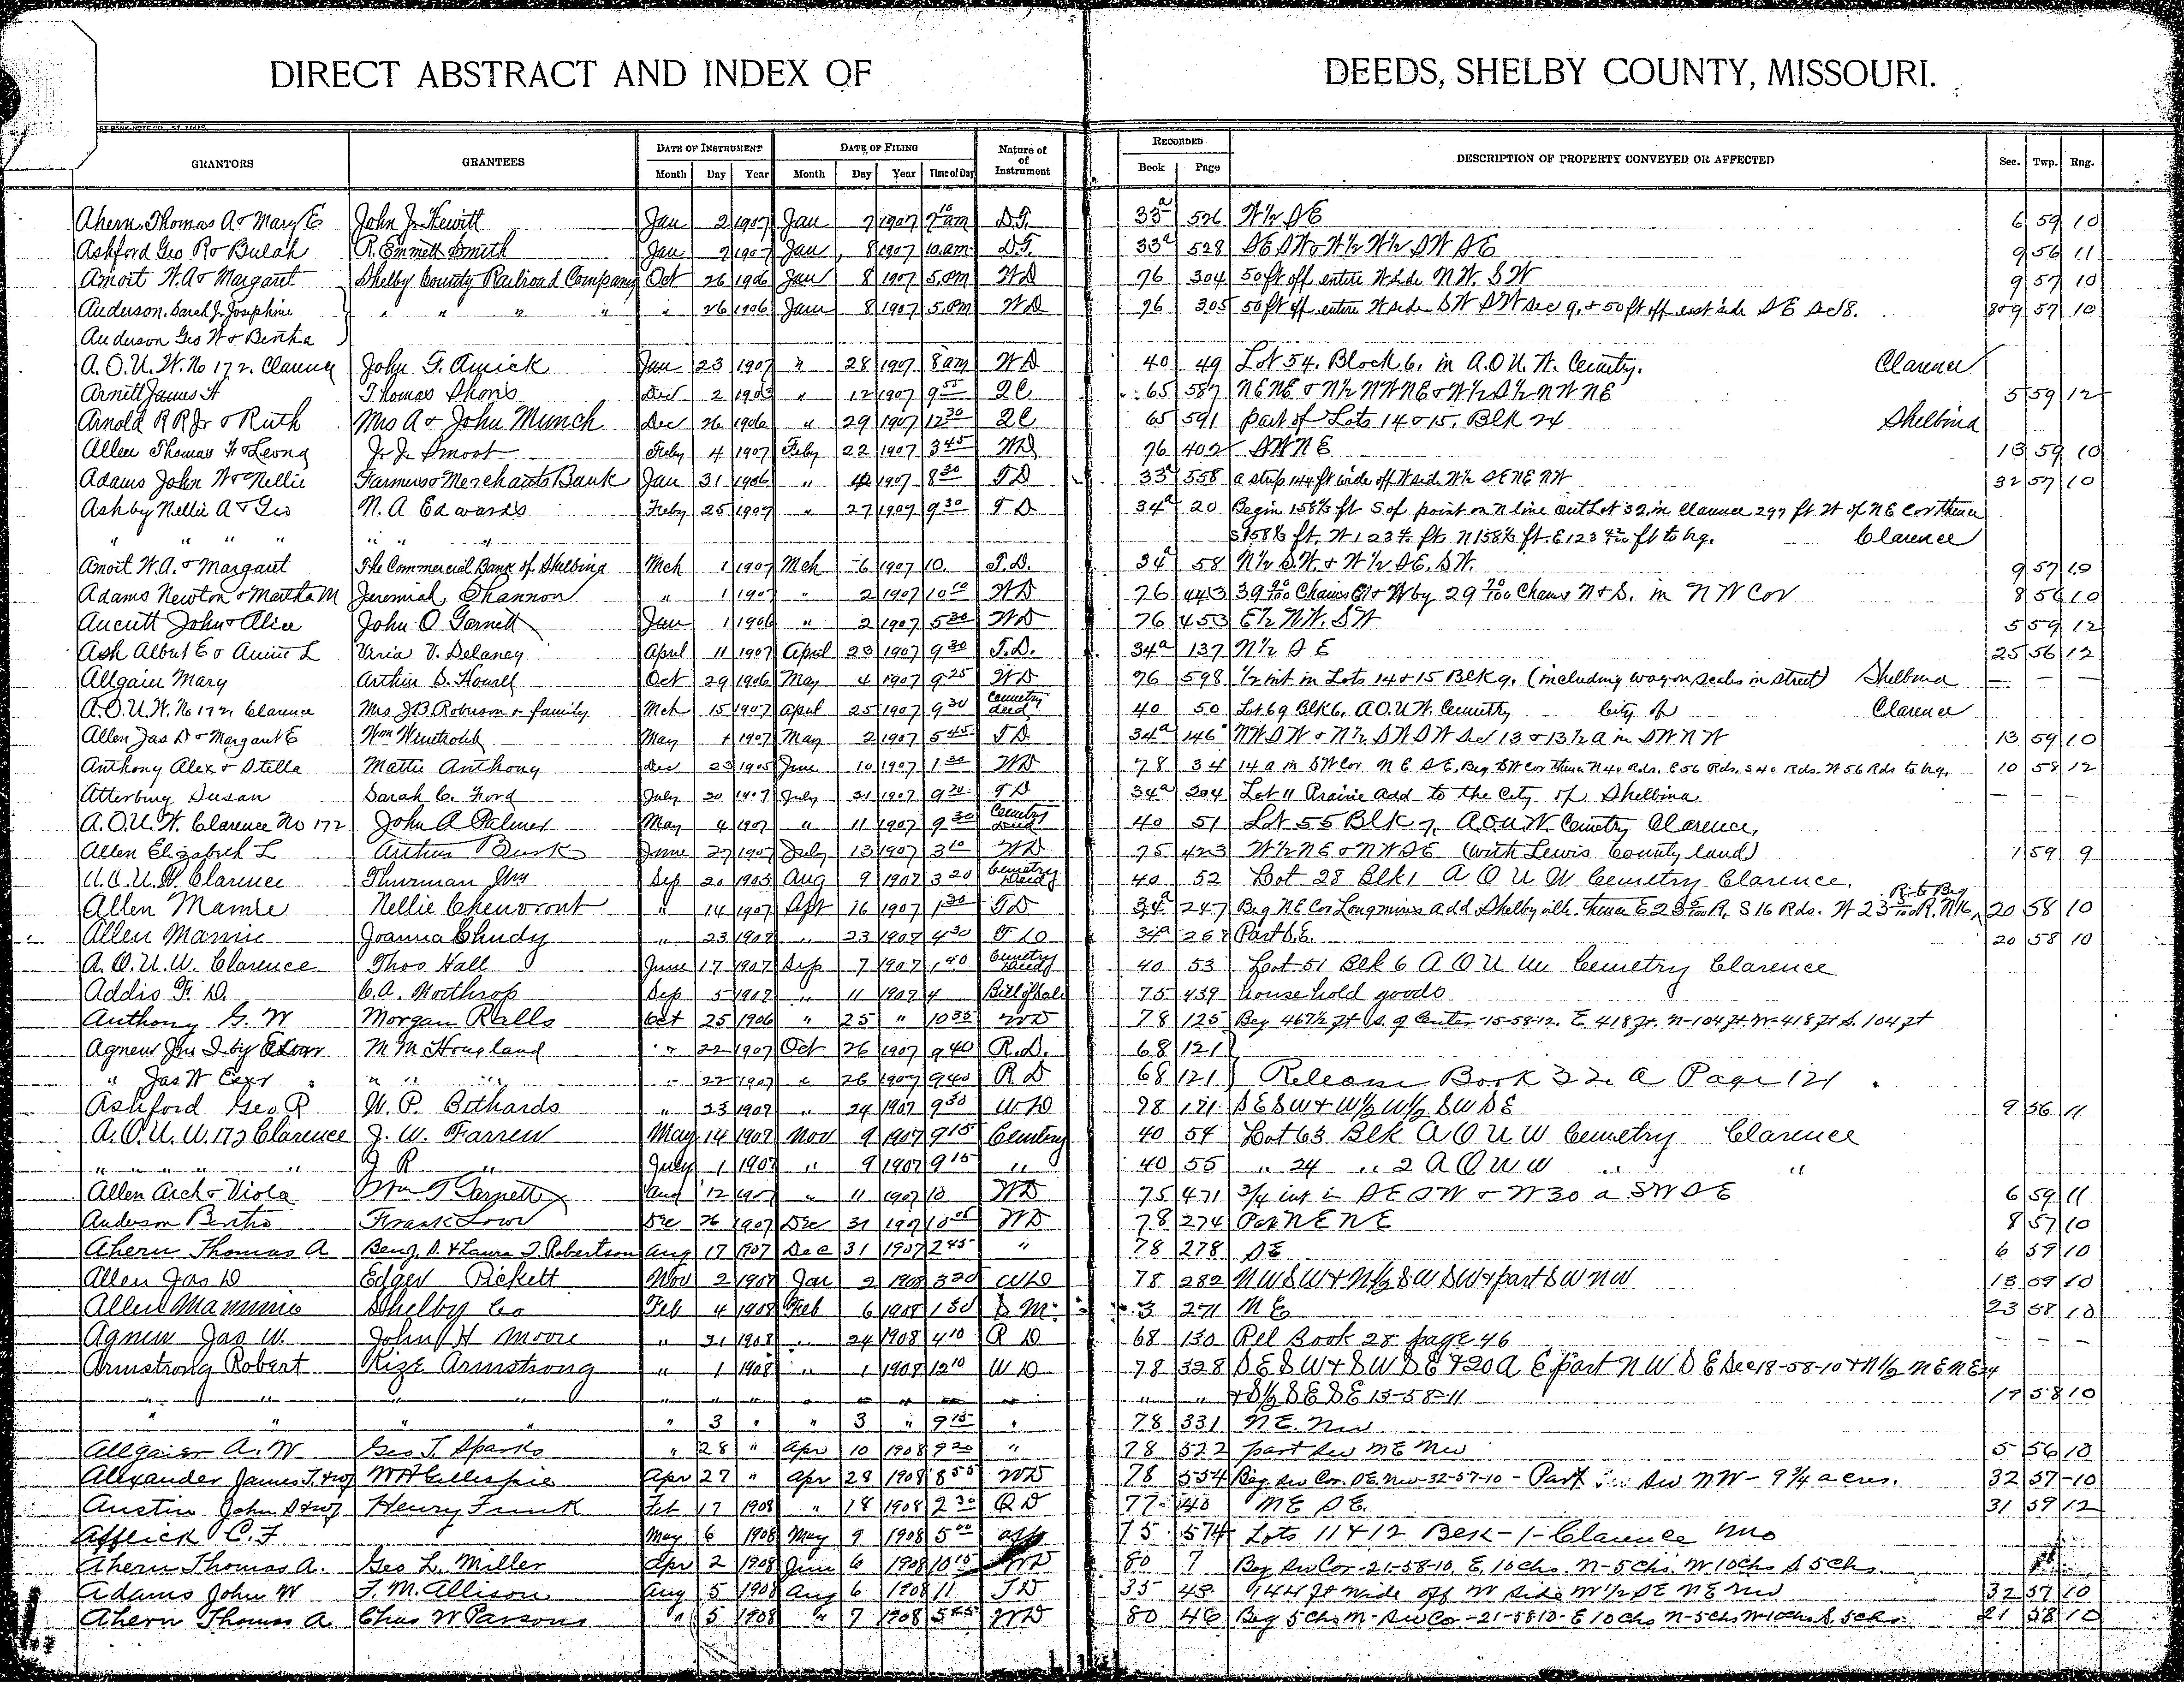 DIRECT ABSTRACT AND INDEX OF DEEDS, SHELBY COUNTY, MISSOURI.
GRANTORS GRANTEES DATE OF INSTRUMENT Month Day Year DATE OF FILING Month Day Year Time of Day Nature of of Instrument RECORDED Book Page DESCRIPTION OF PROPERTY CONVEYED OR AFFECTED Sec. Twp. Rng.
Ahern, Thomas A & Mary E John J. Hewitt Jan 2 1907 Jan 7 1907 D.T. 33a 526 W 1/2 SE 6 59 10
Ashford Geo R & Bulah R. Emmett Smith Jan 7 1907 Jan 8 1907 10 am D.T. 33a 528 SE SW & W 1/2 W 1/2 SW SE 9 56 11
Amoit W.A & Margaret Shelby County Railroad Company Oct 26 1906 Jan 8 1907 5 pm WD 76 304 50 ft off entire W side N W. S W 9 57 10
Anderson, Sarah J. Josephine " " " " " 26 1906 Jan 8 1907 5 pm WD 76 305 50 ft off entire W side SW SW Sec 9, & 50 ft off east side SE Sec 8. 8&9 57 10
Anderson Geo W & Bertha
A.O.U.W. No 172. Clarence John G. Amick Jan 23 1907 " 28 1907 8 am WD 40 49 Lot 54. Block 6, in A.O.U.W. Cemetry. Clarence
Arnett James H Thomas Shons Dec 2 " 12 1907 9 55 QC 65 587 NE NE & N 1/2 NW NE & N 1/2 S 1/2 NW NE 5 59 12
Arnold R R Jr & Ruth Mrs A & John Munch Dec 26 1906 " 29 1907 12 30 QC 65 591 part of Lots 14 & 15, Blk 24 Shelbina
Allen Thomas F & Leona J. J. Smoot Feby 4 1907 Feby 22 1907 3 45 WD 76 402 SW NE 13 59 10
Adams John W & Nellie Farmers & Merchants Bank Jan 31 1906 " 1907 8 30 TD 33a 558 a strip 144 ft wide off W side W 1/2 SE NE NW 32 57 10
Ashby Nellie A & Geo N. A. Edwards Feby 25 1907 " 27 1907 9 30 TD 34a 20 Begin 158 1/3 ft S of point on N line outLot 32, in Clarence 297 ft W of NE Cor thence
" " " " " " " S 158 1/3 ft, W 123 ft N 158 1/3 ft E 123 ft to bg. Clarence
Amoit W.A. & Margaret The Commercial Bank of Shelbina Mch 1 1907 Mch 6 1907 10. T.D. 34a 58 N 1/2 S.W. & W 1/2 SE. SW. 9 57 10
Adams Newton & Martha M Jeremiah Shannon " 1 1907 " 2 1907 10 10 WD 76 443 39 90/100 Chains E & W by 29 70/100 Chains N & S. in N W Cor 8 56 10
Aucutt John & Alice John O Garnett Jan 1 1906 " 2 1907 5 30 WD 76 453 E 1/2 NW. SW 5 59 12
Ash Albert E & Annie L Varia V. Delaney April 11 1907 April 23 1907 9 30 T.D. 34a 137 N 1/2 SE 25 56 12
Allgaier Mary Arthur D. Howell Oct 29 1906 May 4 1907 9 25 WD 76 598 1/2 int in Lots 14 & 15 Blk 9. (including wagon scales in street) Shelbina — — —
A.O.U.W. No 172, Clarence Mrs J B Robison & family Mch 15 1907 April 25 1907 9 30 Cemetry deed 40 50 Lot 69 Blk 6, A O U W. Cemetry City of Clarence
Allen Jas D & Margaret E Wm Winetroub May 1 1907 May 2 1907 5 45 TD 34a 146 NW SW & N 1/2 SW SW Sec 13 & 13 1/2 a in SW NW 13 59 10
Anthony Alex & Stella Mattie Anthony Dec 23 1905 June 10 1907 1 30 WD 78 34 14 a in SW Cor NE SE, Beg SW Cor thence N 40 Rds. E 56 Rds, S 40 Rds. W 56 Rds to bg. 10 58 12
Atterbury Susan Sarah C. Ford July 30 1907 July 31 1907 9 30 TD 34a 204 Lot 11 Prairie Add to the City of Shelbina — — —
A.O.U.W. Clarence No 172 John A Palmer May 4 1907 " 11 1907 9 30 Cemetry Deed 40 51 Lot 55 Blk 7, A O U W. Cemetry Clarence,
Allen Elizabeth L Arthur Busk June 27 1907 July 13 1907 3 10 WD 75 423 W 1/2 NE & NW SE (with Lewis County land) 1 59 9
A.O.U.W. Clarence Thurman Sep 20 1905 Aug 9 1907 3 20 Cemetry Deed 40 52 Lot 28 Blk 1 A O U W Cemetry Clarence.
Allen Mamie Nellie Chenvront " 14 1907 Sept 16 1907 1 30 TD 34a 247 Beg NE Cor Longmires add Shelbyville. thence E 23 R, S 16 Rds. W 23 R. N 16 R to Beg 20 58 10
Allen Mamie Joanna Chudy " 23 1907 " 23 1907 4 30 TD 34a 267 Part S.E. 20 58 10
A.O.U.W. Clarence Thos Hall June 17 1907 Sep 7 1907 1 40 Cemetry Deed 40 53 Lot 51 Blk 6 A O U W Cemetry Clarence
Addis F. D. C. A. Northrop Sep 5 1907 " 11 1907 4 Bill of Sale 75 439 house hold goods
Anthony G. W Morgan Ralls Oct 25 1906 " 25 " 10 35 WD 78 125 Beg 467 1/2 ft S. of Center 15-58-12. E 418 ft. N-104 ft. W-418 ft S. 104 ft
Agnew Jno I by Exor M M Hougland " 22 1907 Oct 26 1907 9 40 R.D. 68 121
" Jas W Exr " " " " 22 1907 " 26 1907 9 40 R D 68 121 Release Book 32 a Page 121
Ashford Geo R W. P. Bethards " 23 1907 " 24 1907 9 30 WD 78 171 SE SW & W 1/2 W 1/2 SW SE 9 56 11
A.O.U.W. 172 Clarence J. W. Farrew May 14 1907 Nov 9 1907 9 15 Cemtery 40 54 Lot 63 Blk A O U W Cemetry Clarence
" " " " " J R " July 1 1907 " 9 1907 9 15 " 40 55 " 24 " 2 A O U W " "
Allen Arch & Viola Wm T Garnett Aug 12 1907 " 11 1907 10 WD 75 471 3/4 int in SE SW & W 30 a SW SE 6 59 11
Anderson Bertha Frank Low Dec 26 1907 Dec 31 1907 10 05 WD 78 274 Part NE NE 8 57 10
Ahern Thomas A Benj. D. & Laura T. Robertson Aug 17 1907 Dec 31 1907 2 45 " 78 278 SE 6 59 10
Allen Jas D Edger Pickett Nov 2 1907 Jan 2 1908 3 20 WD 78 282 NW SW & N 1/2 SW SW & part SW NW 13 59 10
Allen Mammie Shelby Co Feb 4 1908 Feb 6 1908 1 30 S M 3 271 NE 23 58 10
Agnew Jas W. John H Moore " 21 1908 " 24 1908 4 10 R D 68 130 Rel Book 28 page 46 — — —
Armstrong Robert Kize Armstrong " 1 1908 " 1 1908 12 10 W D 78 328 SE SW & SW SE & 20 A E part NW SE Sec 18-58-10 & N 1/2 NE NE 24
" " " " " " " " " " " " " & S 1/2 SE SE 13-58-11 17 58 10
" " " " " 3 " " 3 " 9 15 " 78 331 NE. NW
Allgaier A. W Geo T. Sparks " 28 " Apr 10 1908 9 20 " 78 522 part SW NE NW 5 56 10
Alexander James T. & wf W H Gillespie Apr 27 " Apr 28 1908 8 55 WD 78 554 Beg SW Cor. SE NW-32-57-10 - Part SW NW - 9 3/4 acres. 32 57 10
Austin John S & wf Henry Funk Feb 17 1908 " 18 1908 2 30 Q D 77 140 NE SE. 31 59 12
Afflick C. F May 6 1908 May 9 1908 5 00 75 574 Lots 11 & 12 Blk-1-Clarence Mo
Ahern Thomas A. Geo L. Miller Apr 2 1908 June 6 1908 10 15 WD 80 7 Beg SW Cor-21-58-10. E 10 chs. N-5 chs. W 10 chs S 5 chs.
Adams John W T. M. Allison Aug 5 1908 Aug 6 1908 11 TD 35 45 144 ft wide off W side W 1/2 SE NE NW 32 57 10
Ahern Thomas A Chas W Parsons " 5 1908 " 7 1908 5 45 WD 80 46 Beg 5 chs N-SW Cor-21-58 10-E 10 chs N-5 chs W-10 chs S. 5 chs. 21 58 10